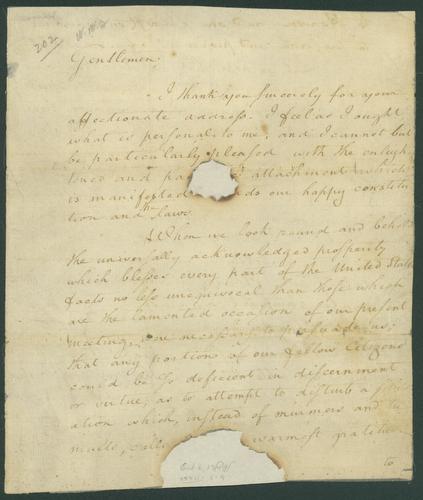 202
Gentlemen,
I thank you sincerely for your
affectionate address. I feel as I ought
what is personal to me, and I cannot but
be particularly pleased with the enligh
tened and pa attachment which
is manifested ds our happy constitu
tion and the laws.
When we look round and behold
the universally acknowledged prosperity
which blesses every part of the United States
facts no less unequivocal than those which
are the lamented occasion of our present
meeting, are necessary to persuade us,
that any portions of our fellow Citizens
could be so deficient in discernment
or virtue, as to attempt to disturb a situ
ation which, instead of murmurs and tu
mults, calls warmest gratitude
to